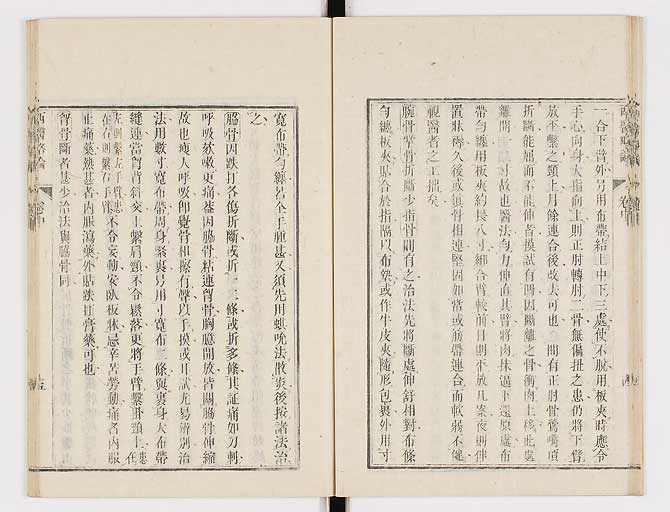 一合下臂外另用布帶結上中下三處使不脫用板夾時應令
手心向身大指向上則正肘轉肘二骨無偏扭之患仍將下臂
放平繫之頸上月餘連合後改去可也 間有正肘骨鶯嘴項
折斷能屈而不能伸者摸試有聞因斷離之骨衝肉上移此處
離開 寸故也醫法勻力伸直其臂將肉抹逼下還原處布
帶勻纏用板夾約長八寸綁合臂較前日則不放几案夜則伸
置牀褥久後或顛骨相連堅固如常或筋帶連合而軟弱不健
視醫者之工拙矣
腕骨掌骨折斷少指骨間有之治法先將斷處伸舒相對布條
勻纏板夾貼合於指隔以布墊或作牛皮夾隨形包裹外用寸
寬布帶勻纏若全手腫甚又須先用蜞吮法散炎後按諸法治
之
脇骨因跌打各傷折斷或折一二條或折多條其証痛如刀刺
呼吸欬嗽更痛蓋因脇骨粘連胷骨胸臆開放皆關脇骨伸縮
故也瘦人呼吸卽覺骨相擦有聲以手摸或耳試尤易辨別治
法用數寸寬布帶周身緊裹另用寸寬布二條與裹身大布帶
縫連當胷背斜交上繫肩頸不令鬆落更將手臂繫掛頸上 在
左則繫左手臂患在右則繫右手臂 不令妄動安臥板牀忌辛苦勞動痛者內服
止痛藥熱甚者內服瀉藥外貼跌打膏藥可也
胷骨斷者甚少治法與脇骨同
西醫畧論